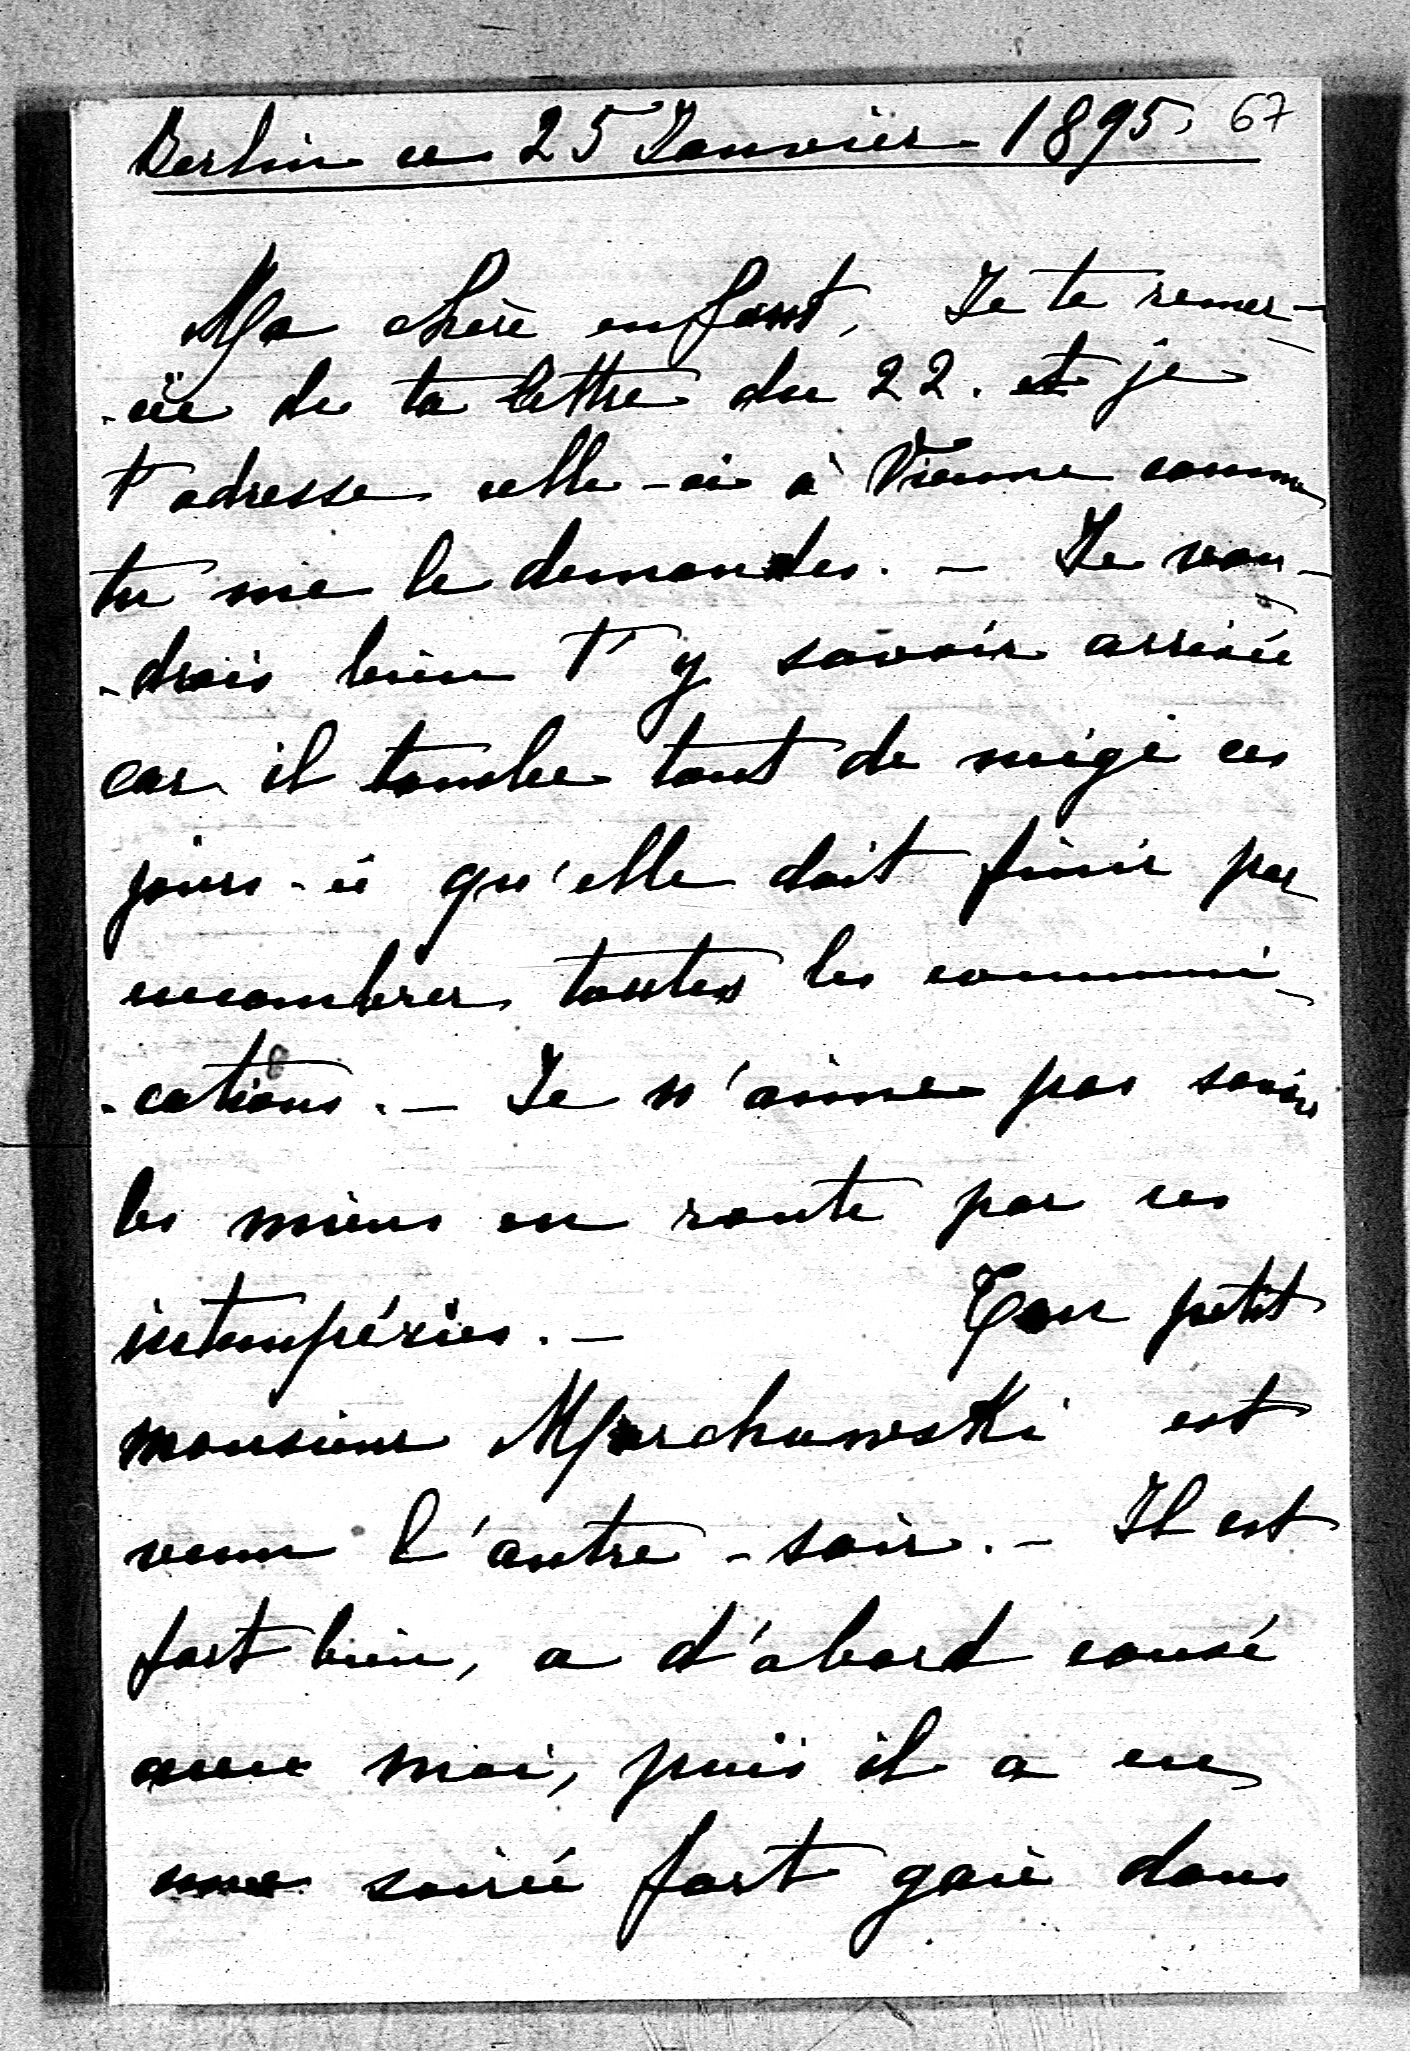 Berlin ce 25 Janvier 1895. 67
Ma chère enfant, Je te remer-
-cie de ta lettre du 22. et je
t'adresse celle-ci à Vienne comme
tu me le demandes. - Je vou-
-drais bien t'y savoir arrivée
car il tombe tant de neige ces
jours-ci qu'elle doit finir par
encombrer toutes les communi-
-cations. - Je n'aime pas savoir
les miens en route par ces
intempéries. - Ton petit
monsieur est
venu l'autre-soir. - Il est
fort bien, a d'abord causé
avec moi, puis il a eu
une soirée fort gaie dans